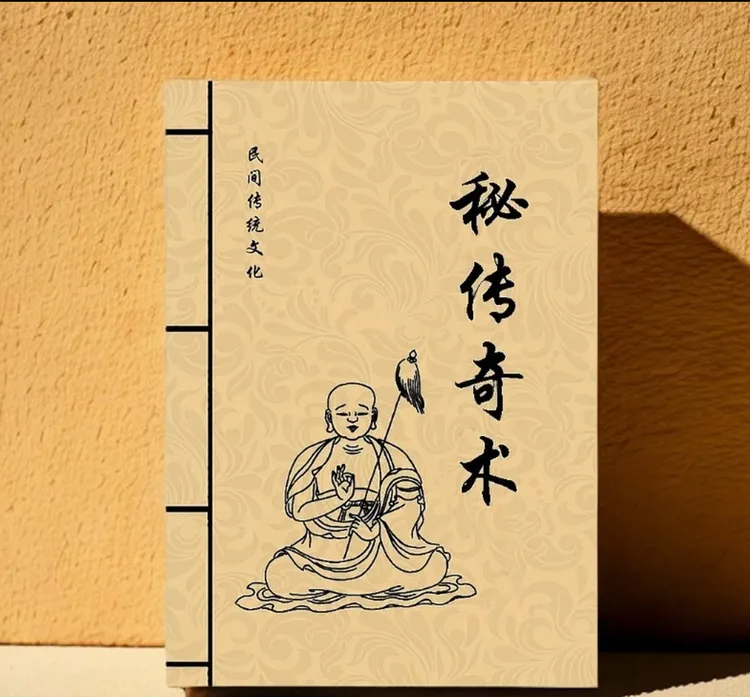 秘传奇术
民间传统文化